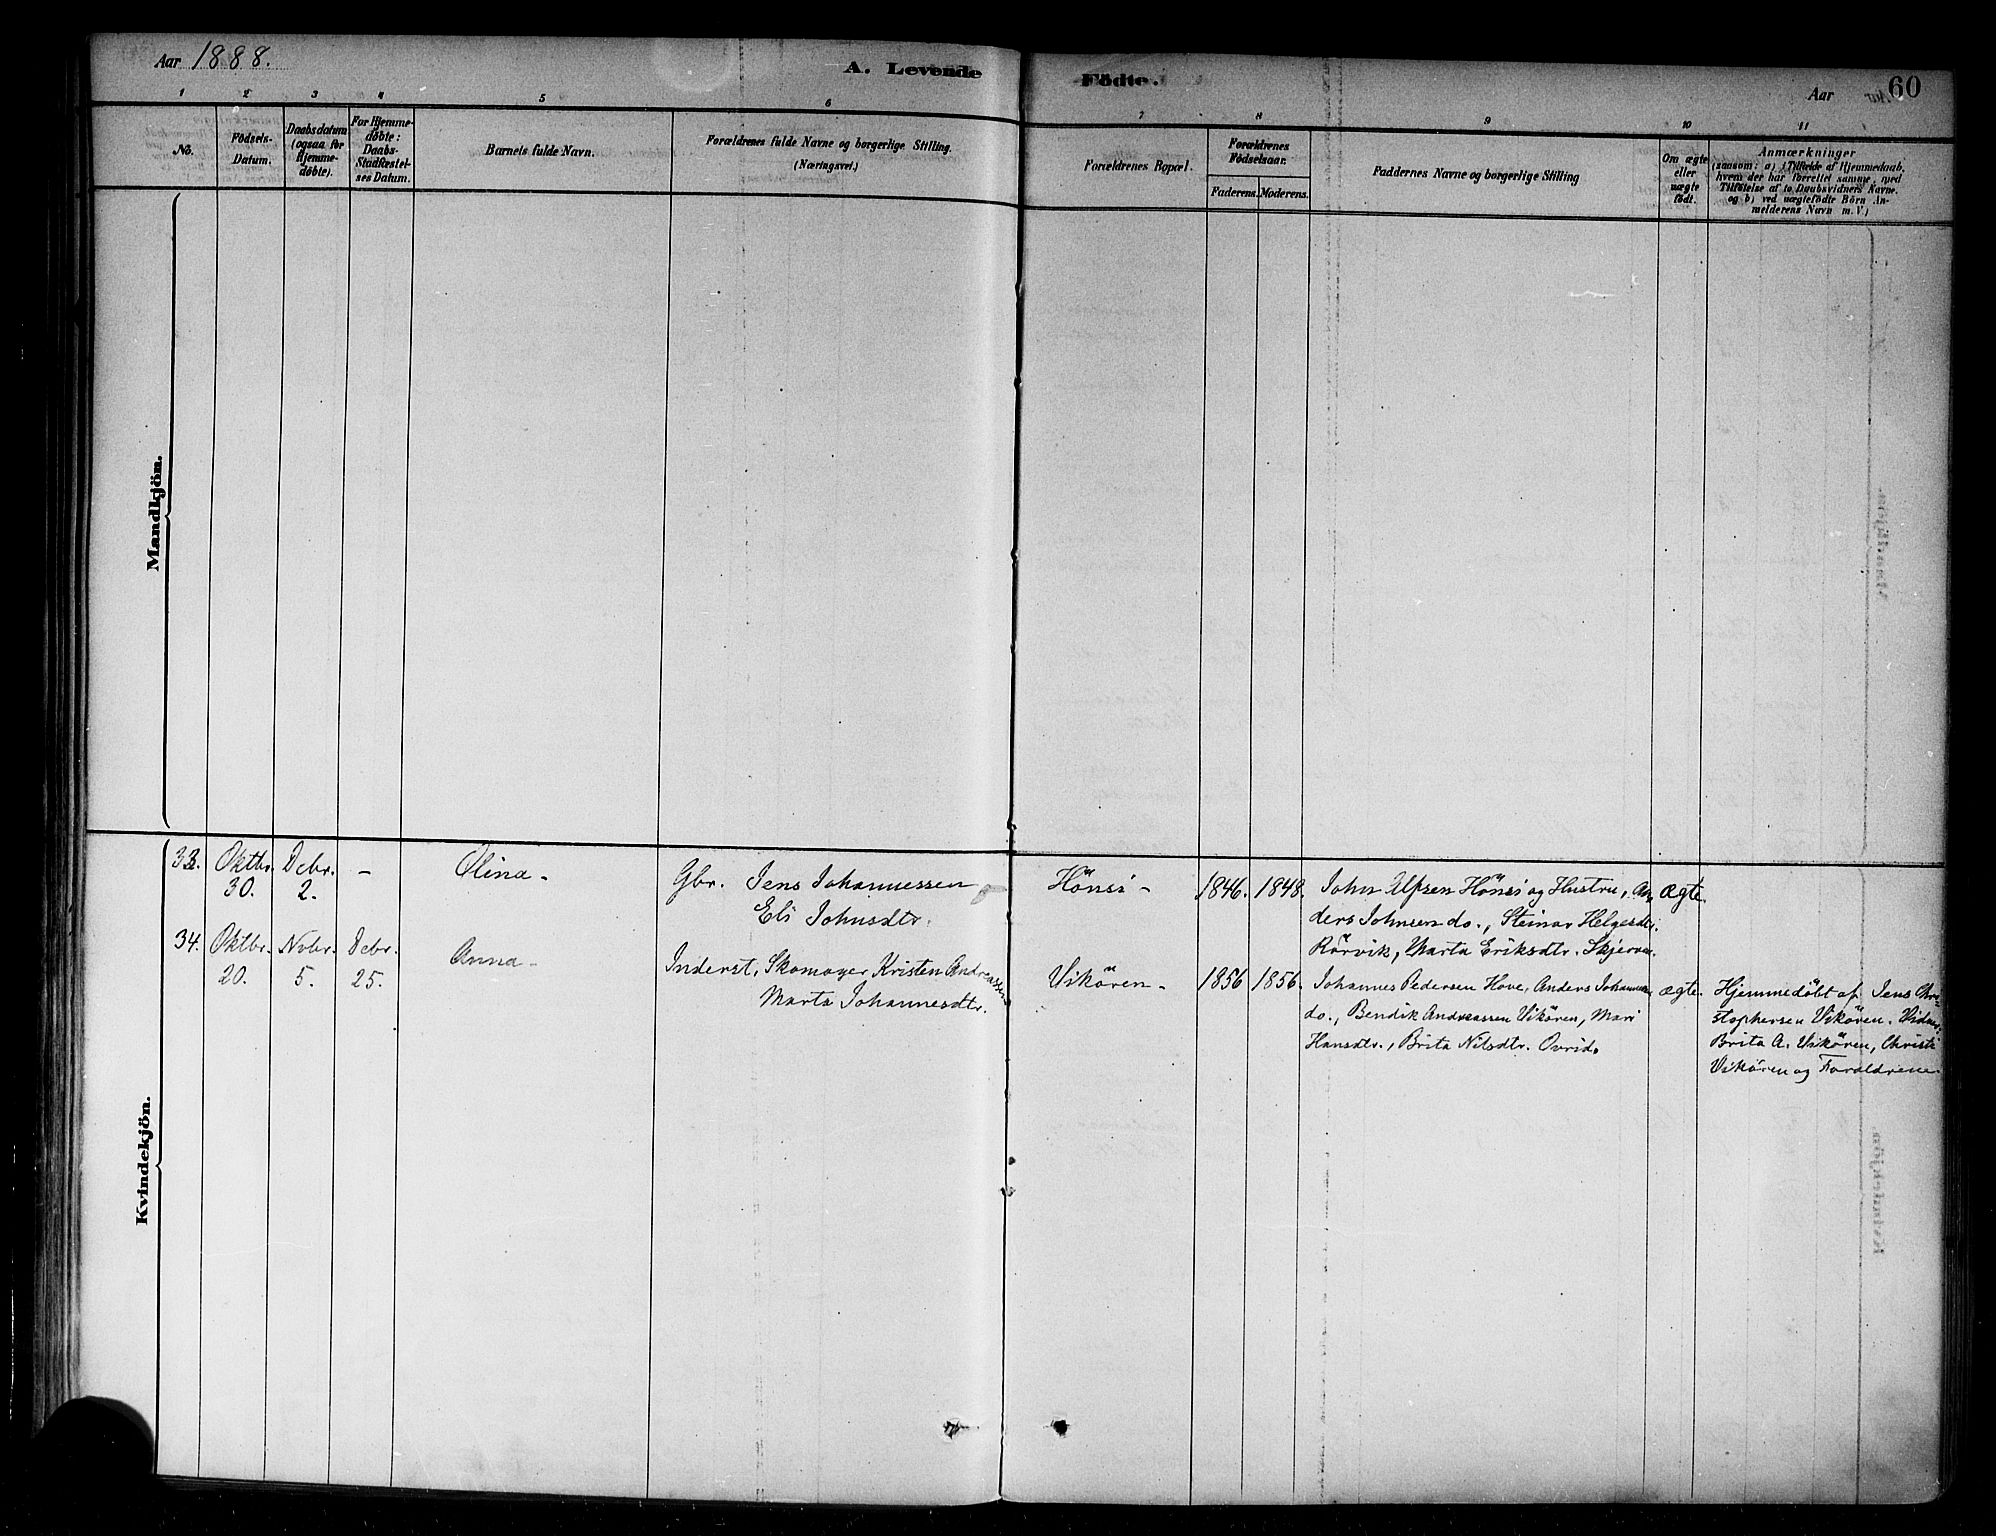 Aar 1888.
A. Levende Födte.
Aar
60
1 2 3 4 5 6 7 8 9 10 11
No.
Födsels-
Datum.
Daabsdatum
(ogsaa for
Hjemme-
døbte).
For Hjemme-
døbte:
Daabs-
Stadfæstel-
ses Datum.
Barnets fulde Navn.
Forældrenes fulde Navne og borgerlige Stilling.
(Næringsvei.)
Forældrenes Bopæl.
Forældrenes
Födselsaar.
Faderens. Moderens.
Faddernes Navne og borgerlige Stilling
Om ægte
eller
uægte
födt.
Anmærkninger
(saasom: a) Tilfælde af Hjemmedaab,
hvem der har forrettet samme, med
Tilføielse af to Daabsvidners Navne.
og b) ved uægtefödte Börn An-
melderens Navn m. V.)
Mandkjön.
Kvindekjön.
33.
Oktbr.
30.
Debr.
2.
-
Olina -
Gbr. Jens Johannessen
Eli Johnsdtr.
Hönsi -
1846. 1848.
John Ulfsen Hönsi og Hustru, An
ders Johnsen do., Steinar Helgesdtr.
Rörvik, Marta Eriksdtr. Skjerven.
ægte.
34.
Oktbr.
20.
Nvbr.
5.
Debr.
25.
Anna -
Inderst, Skomager Kristen Andreassen
Marta Johannesdtr.
Vikören -
1856 1856.
Johannes Pedersen Hove, Anders Johannesen
do., Bendik Andreassen Vikören, Mari
Hansdtr., Brita Nilsdtr. Ovrid.
ægte.
Hjemmedöbt af Jens Chri-
stophersen Vikören. Vidner:
Brita A. Vikören, Christi
Vikören og Forældrene.